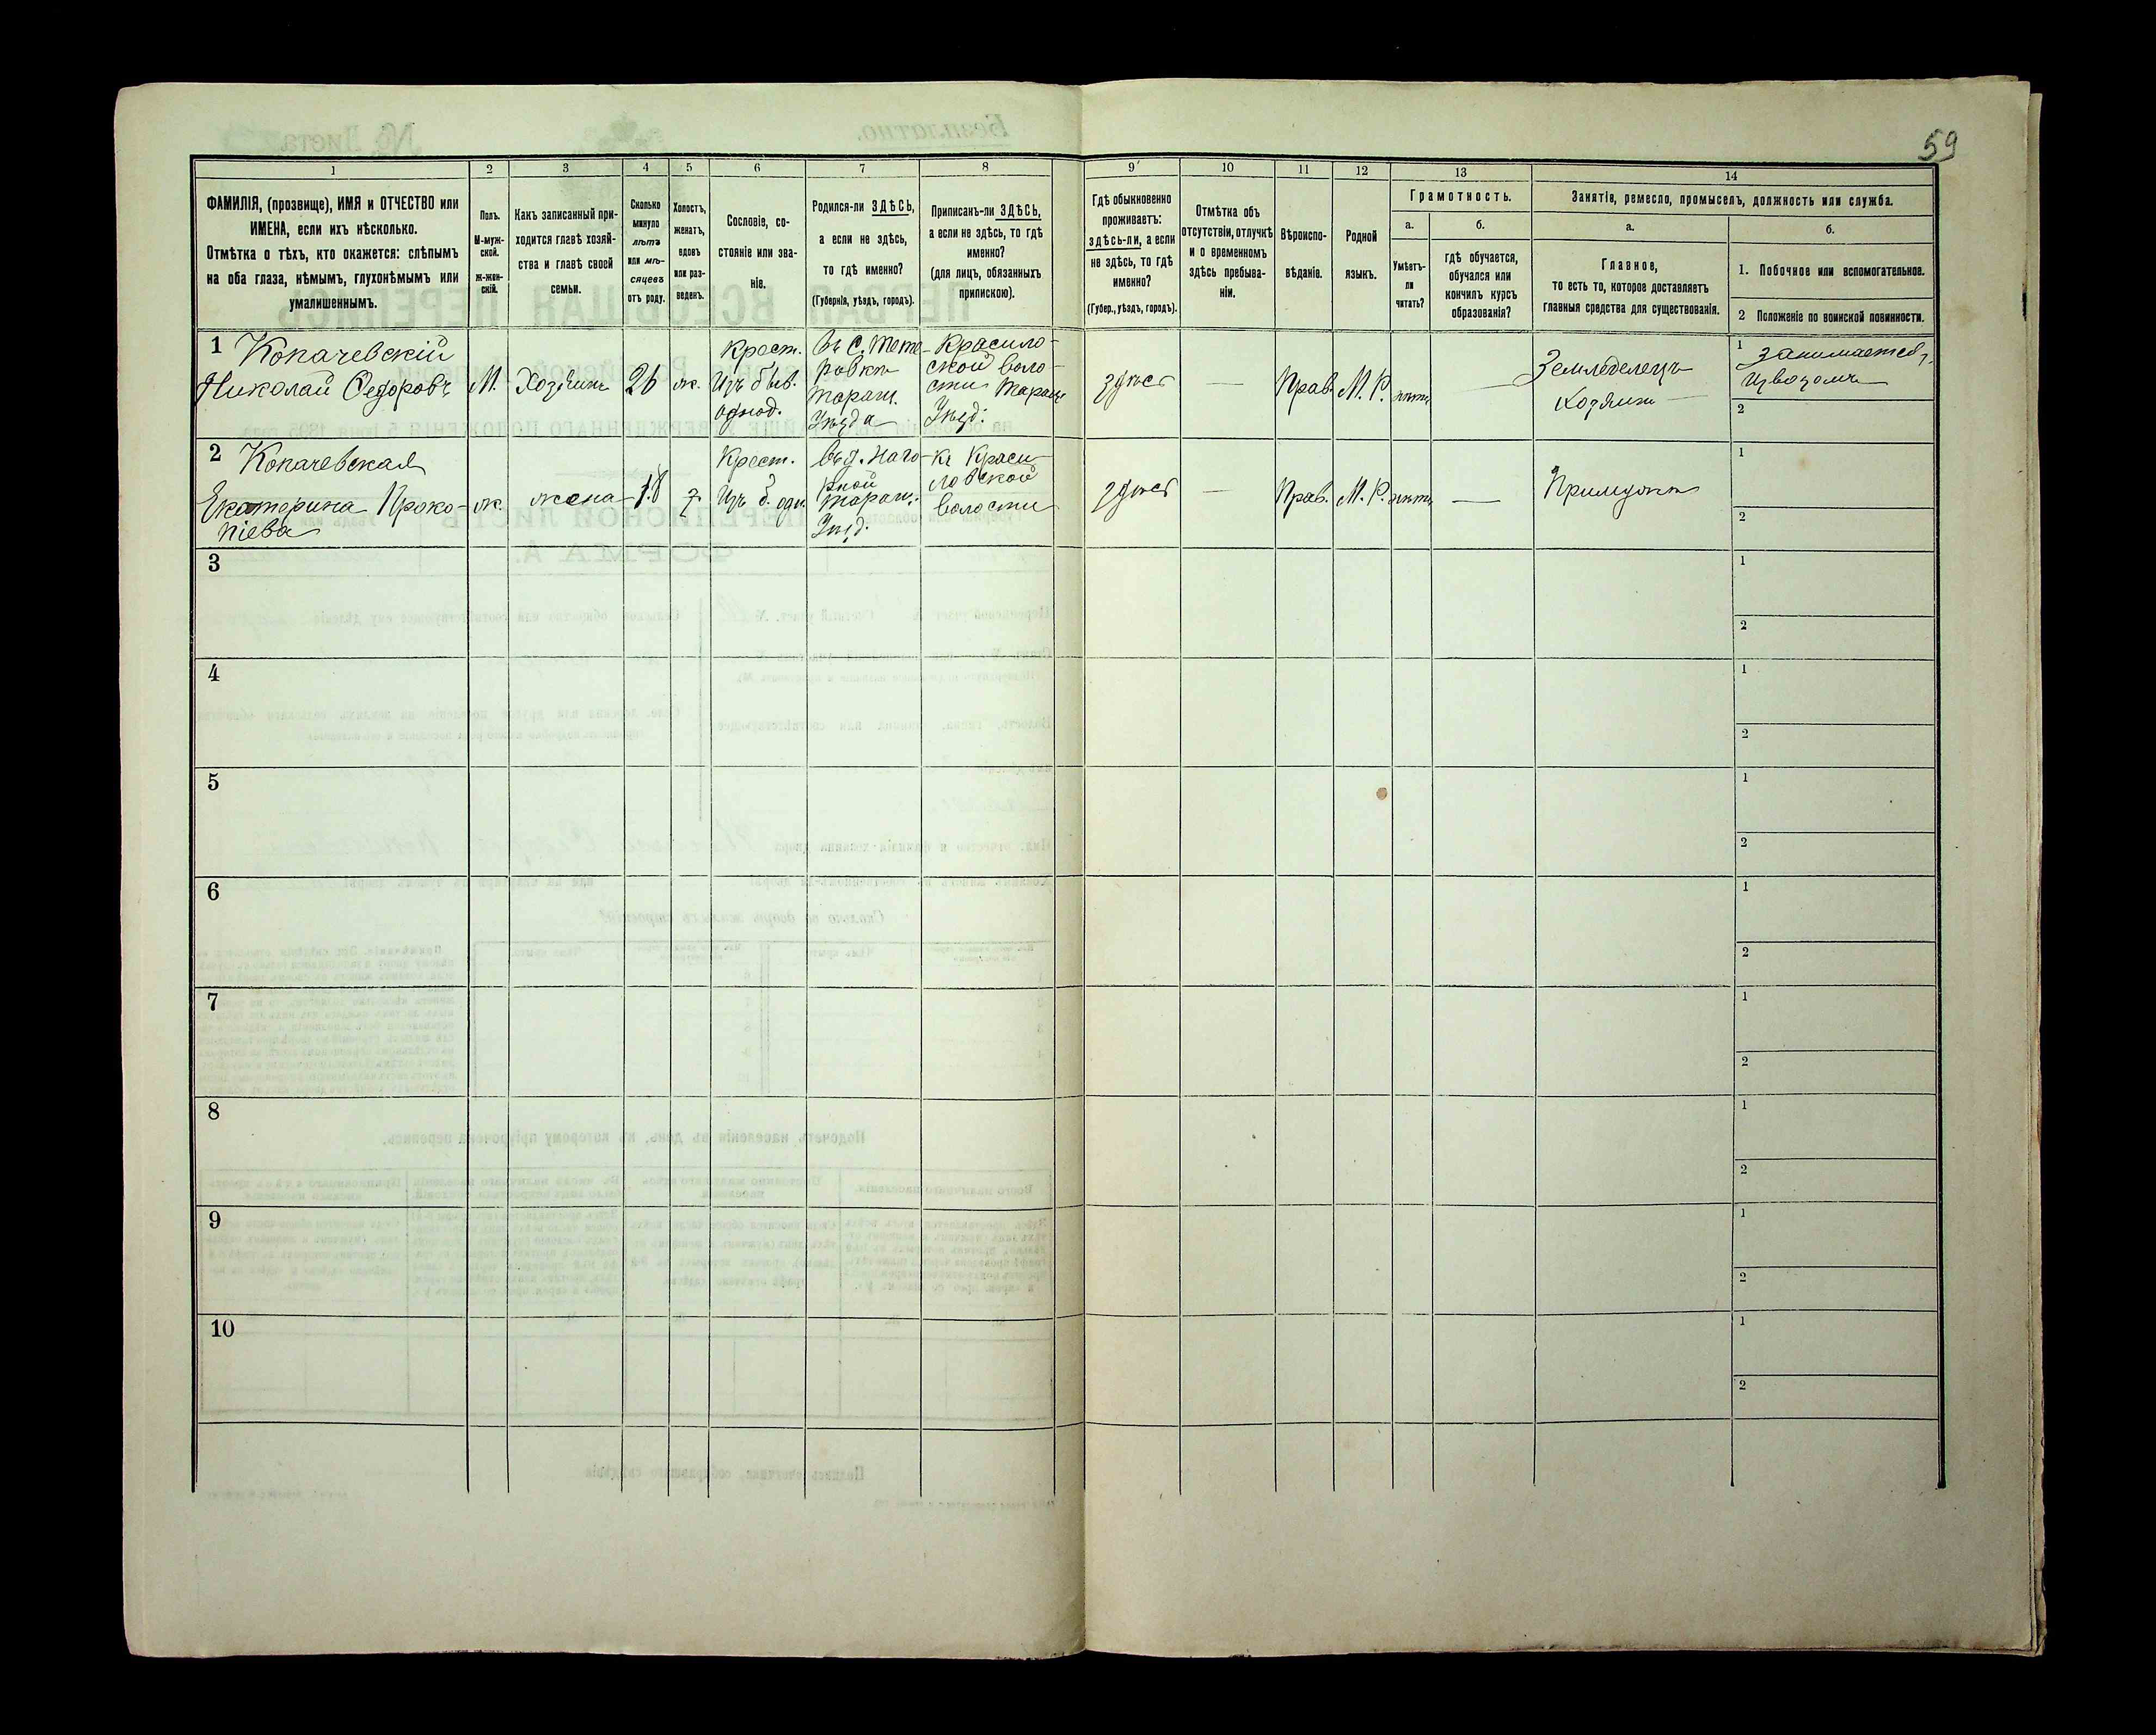 59
1
2
3
4
5
6
7
8
9
10
11
12
13
14
ФАМИЛІЯ, (прозвище), ИМЯ и ОТЧЕСТВО или
ИМЕНА, если ихъ нѣсколько.
Отмѣтка о тѣхъ, кто окажется: слѣпымъ
на оба глаза, нѣмымъ, глухонѣмымъ или
умалишеннымъ.
Полъ.
М-муж-
ской.
ж-жен-
скій.
Какъ записанный при-
ходится главѣ хозяй-
ства и главѣ своей
семьи.
Сколько
минуло
лѣтъ
или мѣ-
сяцевъ
отъ роду.
Холостъ,
женатъ,
вдовъ
или раз-
веденъ.
Сословіе, со-
стояніе или зва-
ніе.
Родился-ли ЗДѢСЬ,
а если не здѣсь,
то гдѣ именно?
(Губернія, уѣздъ, городъ).
Приписанъ-ли ЗДѢСЬ,
а если не здѣсь, то гдѣ
именно?
(для лицъ, обязанныхъ
припискою).
Гдѣ обыкновенно
проживаетъ:
здѣсь-ли, а если
не здѣсь, то гдѣ
именно?
(Губер., уѣздъ, городъ).
Отмѣтка объ
отсутствіи, отлучкѣ
и о временномъ
здѣсь пребыва-
ніи.
Вѣроиспо-
вѣданіе.
Родной
языкъ.
Грамотность.
а.
Умѣетъ-
ли
читать?
б.
гдѣ обучается,
обучался или
кончилъ курсъ
образованія?
Занятіе, ремесло, промыселъ, должность или служба.
а.
Главное,
то есть то, которое доставляетъ
главныя средства для существованія.
б.
1. Побочное или вспомогательное.
2 Положеніе по воинской повинности.
1 Копачевскій
Николай Ѳедоровъ
М.
Хозяинъ
26
ж.
Крест.
Изъ быв.
однод.
Въ С. Тете-
ровкѣ
Таращ.
Уѣзда
Красило-
ской воло-
сти Таращ
Уѣзд.
здѣсь
—
Прав.
М. Р.
нѣтъ
—
Земледелецъ
Хозяинъ
1 занимается
Извозомъ
2
2 Копачевская
Екатерина Проко-
піева
ж.
жена
18
з
Крест.
Изъ б. одн.
Въ д. Наго-
рной
Таращ.
Уѣзд.
Къ Краси-
ловской
волости
здѣсь
—
Прав.
М. Р.
нѣтъ
—
1
2
3
1
2
4
1
2
5
1
2
6
1
2
7
1
2
8
1
2
9
1
2
10
1
2